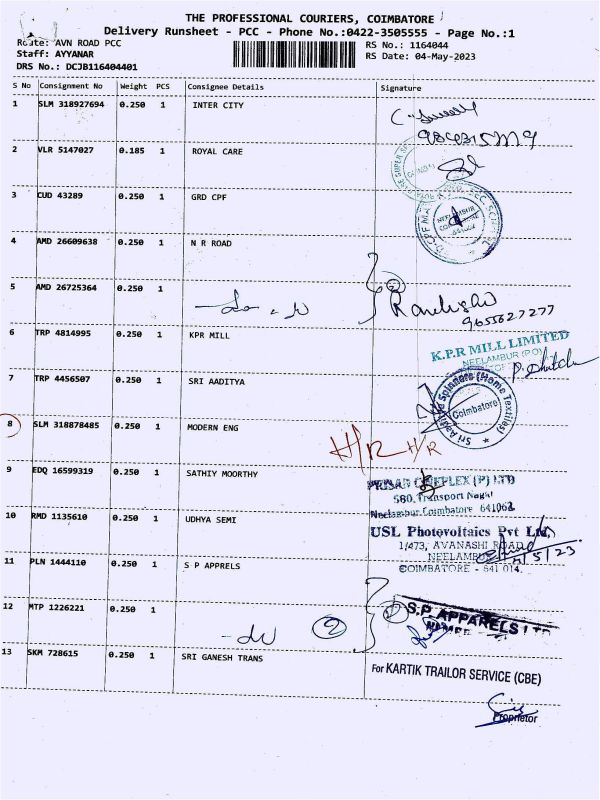 THE PROFESSIONAL COURIERS, COIMBATORE
Delivery Runsheet - PCC - Phone No.:0422-3505555 - Page No.:1
Route: AVN ROAD PCC
RS No.: 1164044
Staff: AYYANAR
RS Date: 04-May-2023
DRS No.: DCJB116404401
S No Consignment No Weight PCS Consignee Details Signature
1 SLM 318927694 0.250 1 INTER CITY
2 VLR 5147027 0.185 1 ROYAL CARE
3 CUD 43289 0.250 1 GRD CPF
NEELAMBUR
4 AMD 26609638 0.250 1 N R ROAD
5 AMD 26725364 0.250 1
2
9655627277
6 TRP 4814995 0.250 1 KPR MILL
K.P.R MILL LIMITED
NEELAMBUR (PO)
7 TRP 4456507 0.250 1 SRI AADITYA
Sri Aaditya Spinners (Home Textiles)
Coimbatore
8 SLM 318878485 0.250 1 MODERN ENG
H/R H/R
9 EDQ 16599319 0.250 1 SATHIY MOORTHY
580, Transport Nagar
Neelambur, Coimbatore 641062
10 RMD 1135610 0.250 1 UDHYA SEMI
USL Photovoltaics Pvt Ltd,
1/473, AVANASHI ROAD
NEELAMBUR
COIMBATORE - 641 014.
11 PLN 1444110 0.250 1 S P APPRELS
12 MTP 1226221 0.250 1
2
S.P. APPARELS LTD
13 SKM 728615 0.250 1 SRI GANESH TRANS
For KARTIK TRAILOR SERVICE (CBE)
Proprietor